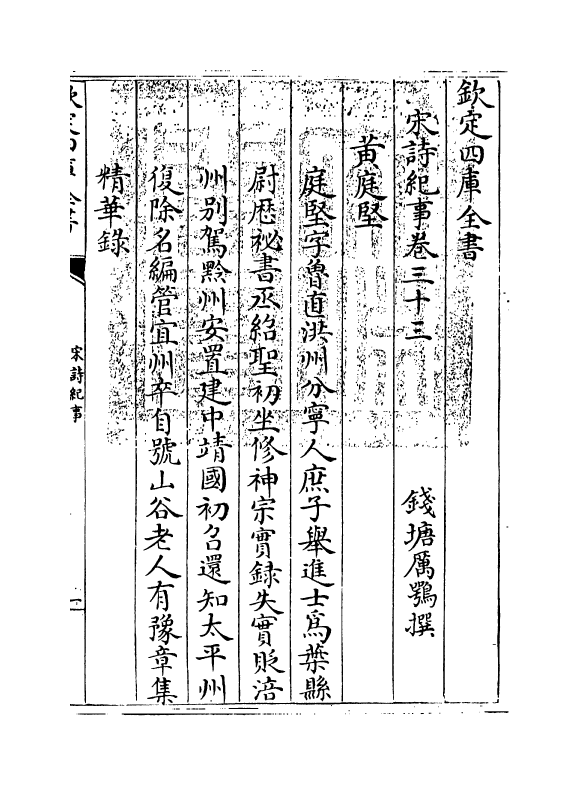 欽定四庫全書
宋詩紀事卷三十三
錢塘厲鶚撰
黄庭堅
庭堅字魯直洪州分寧人庶子舉進士為葉縣
尉歷祕書丞紹聖初坐修神宗實録失實貶涪
州别駕黔州安置建中靖國初召還知太平州
復除名編管宜州卒自號山谷老人有豫章集
精華錄
欽定四庫全書
宋詩紀事
一